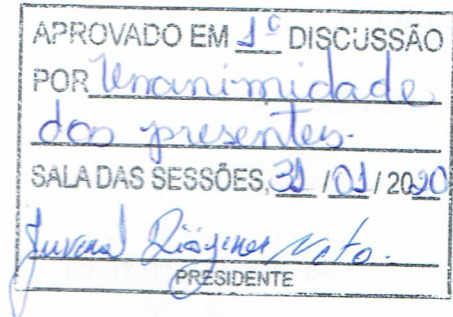 APROVADO EM 1ª DISCUSSÃO
POR Unanimidade
dos presentes.
SALA DAS SESSÕES, 31 / 01 / 2020
Juvenal Diógenes Neto.
PRESIDENTE